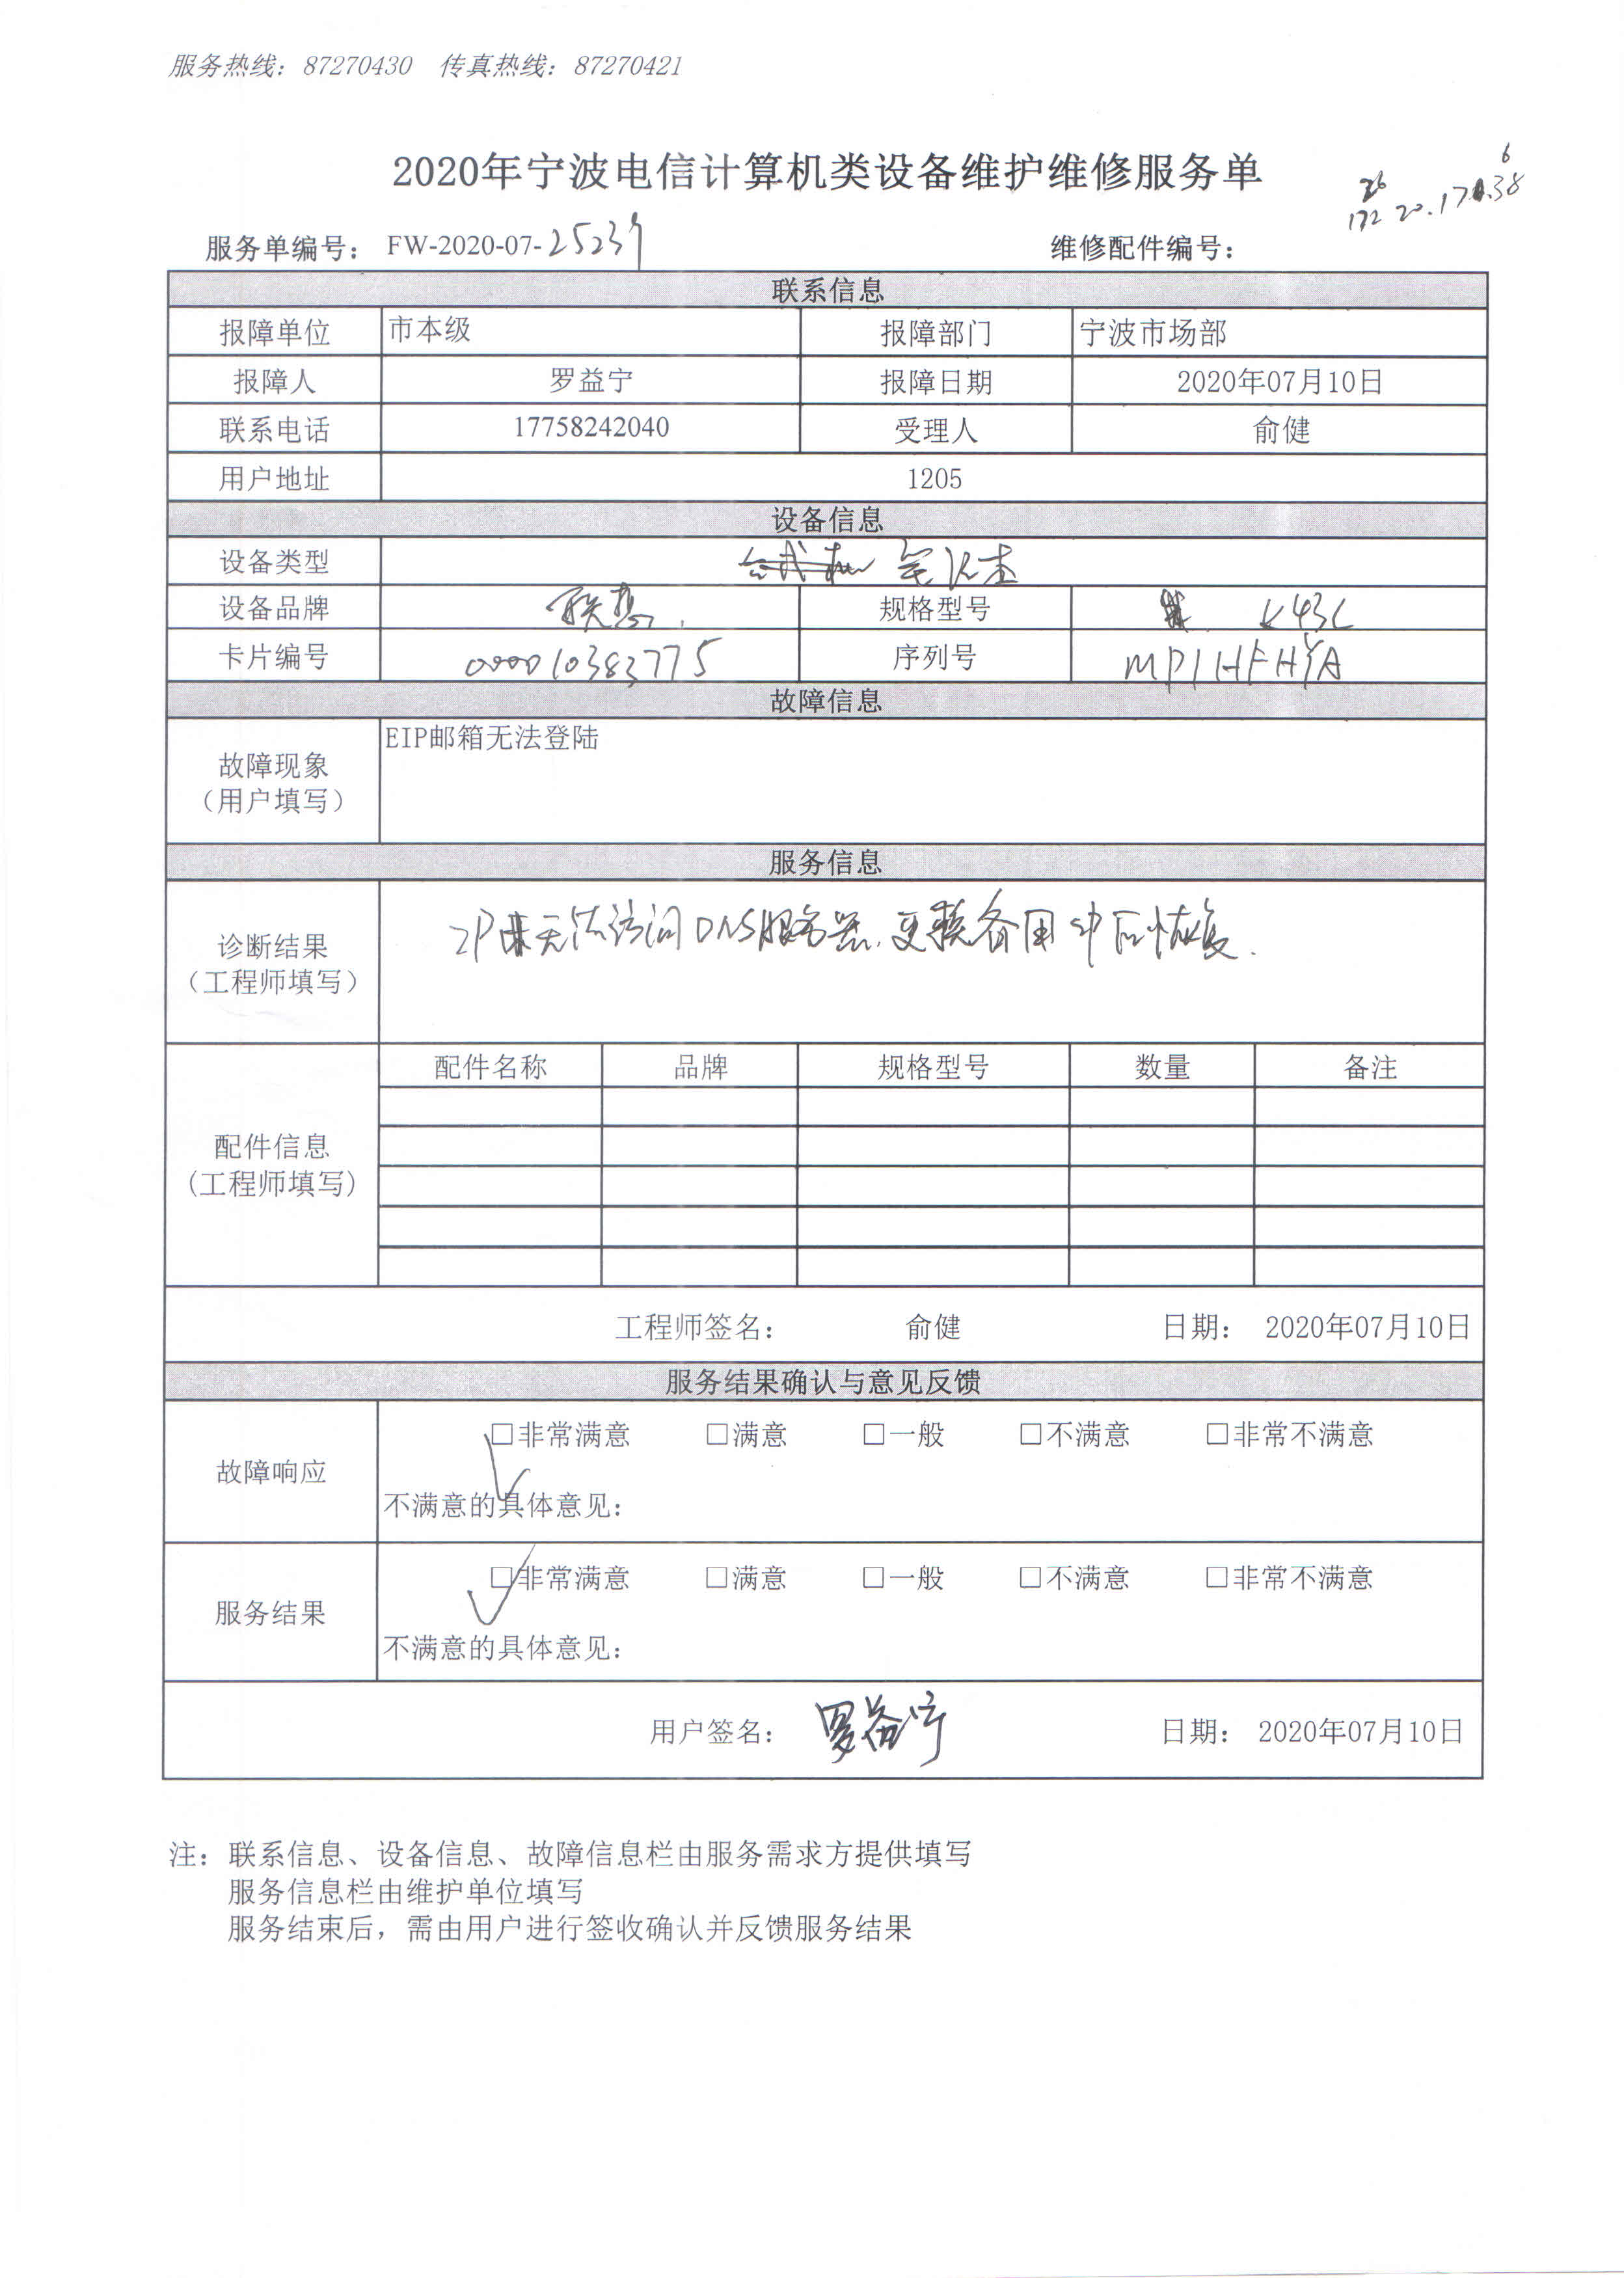 服务热线：87270430 传真热线：87270421
2020年宁波电信计算机类设备维护维修服务单
服务单编号： FW-2020-07-25239 维修配件编号：
联系信息
报障单位 市本级 报障部门 宁波市场部
报障人 罗益宁 报障日期 2020年07月10日
联系电话 17758242040 受理人 俞健
用户地址 1205
设备信息
设备类型 台式机 笔记本
设备品牌 联想 规格型号 K43L
卡片编号 000010383775 序列号 MP1HFHYA
故障信息
故障现象
（用户填写）
EIP邮箱无法登陆
服务信息
诊断结果
（工程师填写）
IP无法访问DNS服务器，更换备用IP后恢复.
配件信息
(工程师填写)
配件名称 品牌 规格型号 数量 备注
工程师签名： 俞健 日期： 2020年07月10日
服务结果确认与意见反馈
故障响应
□非常满意 □满意 □一般 □不满意 □非常不满意
不满意的具体意见：
服务结果
□非常满意 □满意 □一般 □不满意 □非常不满意
不满意的具体意见：
用户签名： 罗益宁 日期： 2020年07月10日
注： 联系信息、设备信息、故障信息栏由服务需求方提供填写
服务信息栏由维护单位填写
服务结束后，需由用户进行签收确认并反馈服务结果